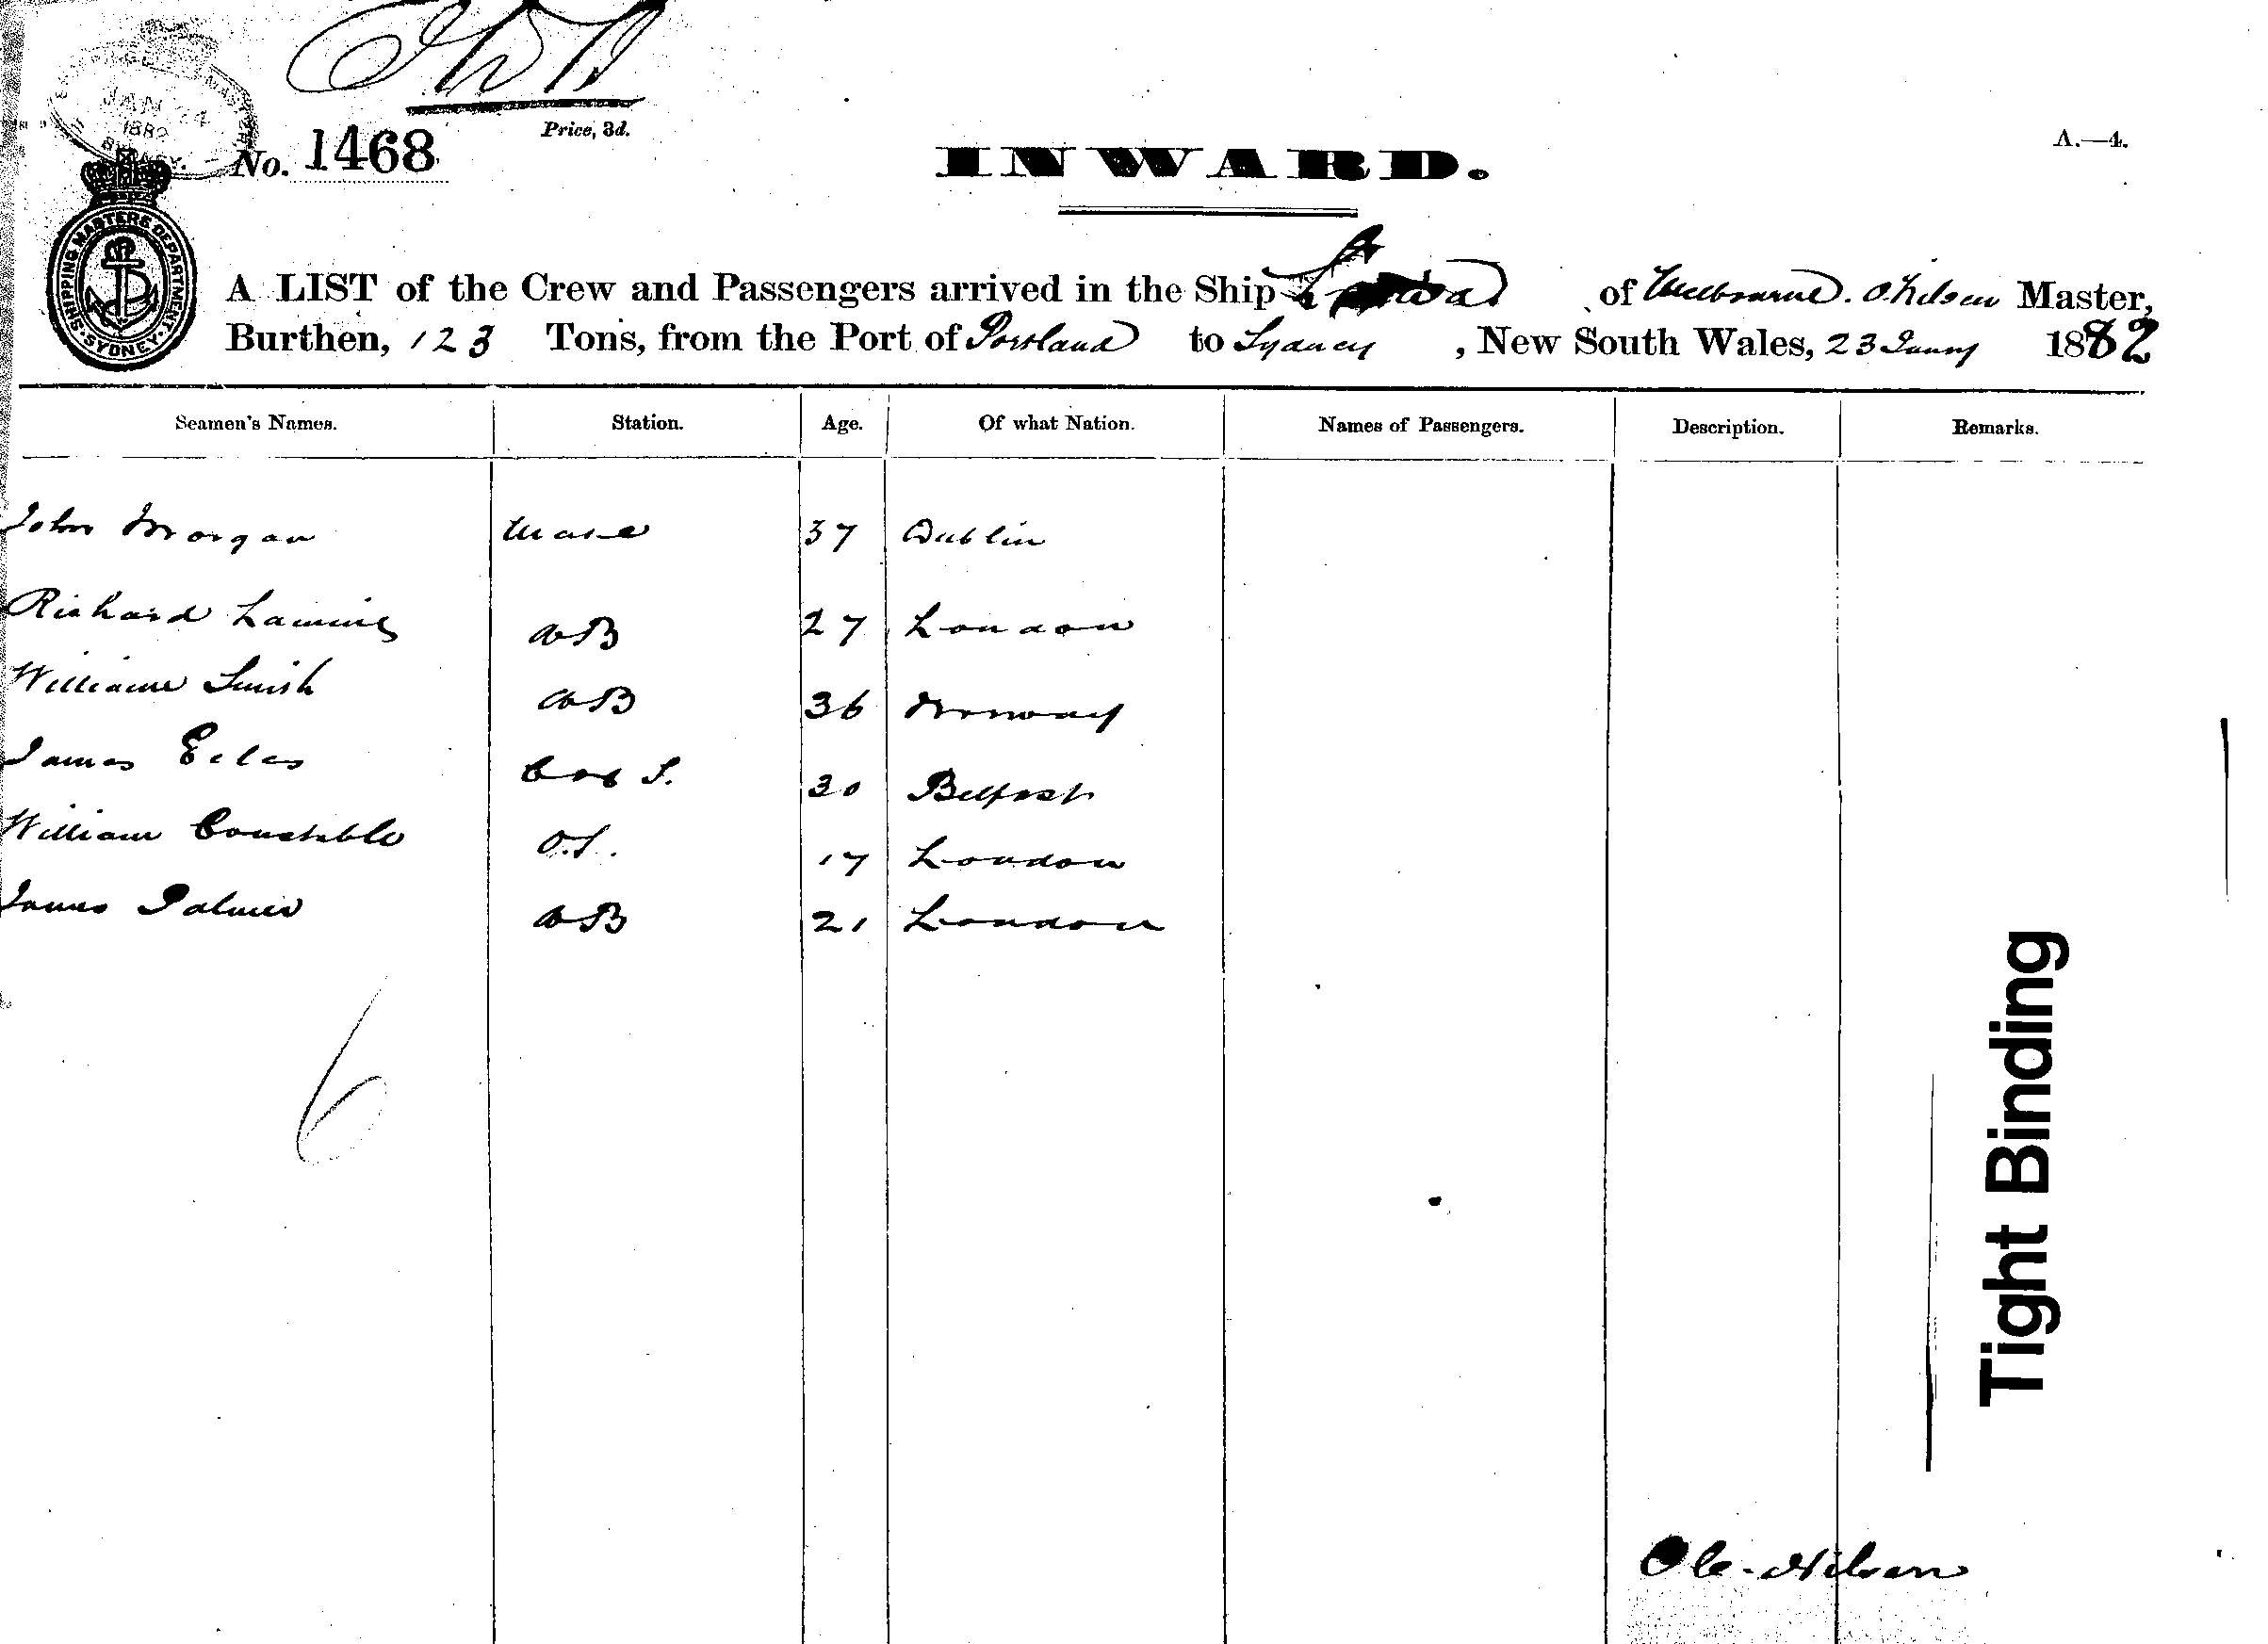 JAN 24
1882
Price, 3d.
No. 1468
INWARD.
A.—4.
SHIPPING MASTERS DEPARTMENT
SYDNEY
A LIST of the Crew and Passengers arrived in the Ship of Melbourne. O. Nilsen Master,
Burthen, 123 Tons, from the Port of Portland to Sydney, New South Wales, 23 Jany 1882
Seamen's Names. Station. Age. Of what Nation. Names of Passengers. Description. Remarks.
John Morgan Mate 37 Dublin
Richard AB 27 London
William Smith AB 36 Norway
James Eeles C & S. 30 Belfast
William Constable O.S. 17 London
James Palmer AB 21 London
6
Tight Binding
Ole Nilsen